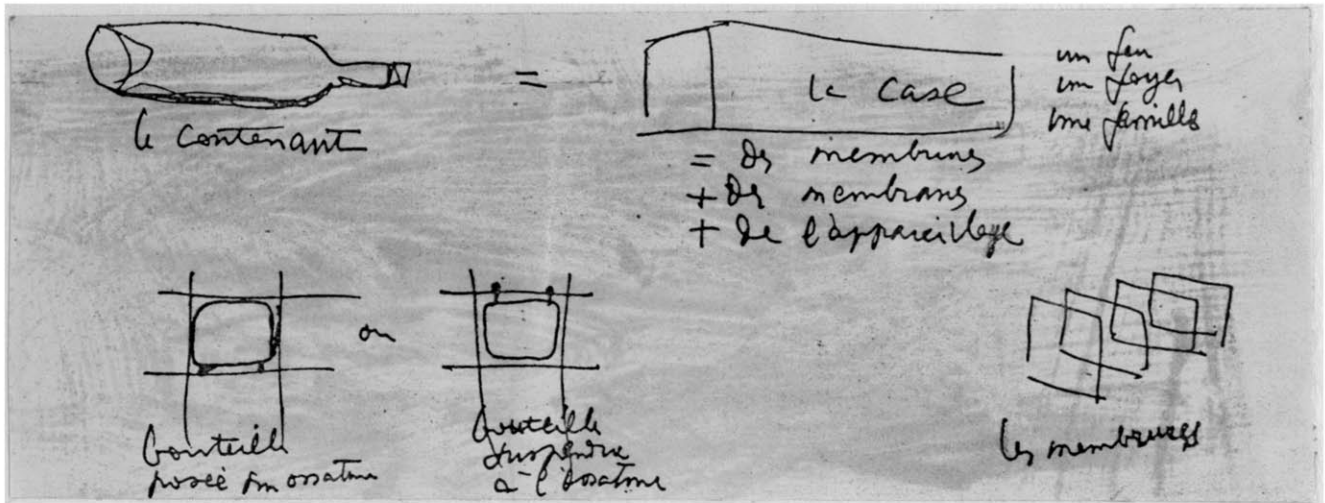 le contenant
=
la case
un feu
un foyer
une famille
= des membrures
+ des membranes
+ de l'appareillage
bouteille
posée sur ossature
ou
bouteille
suspendue
à l'ossature
les membrures